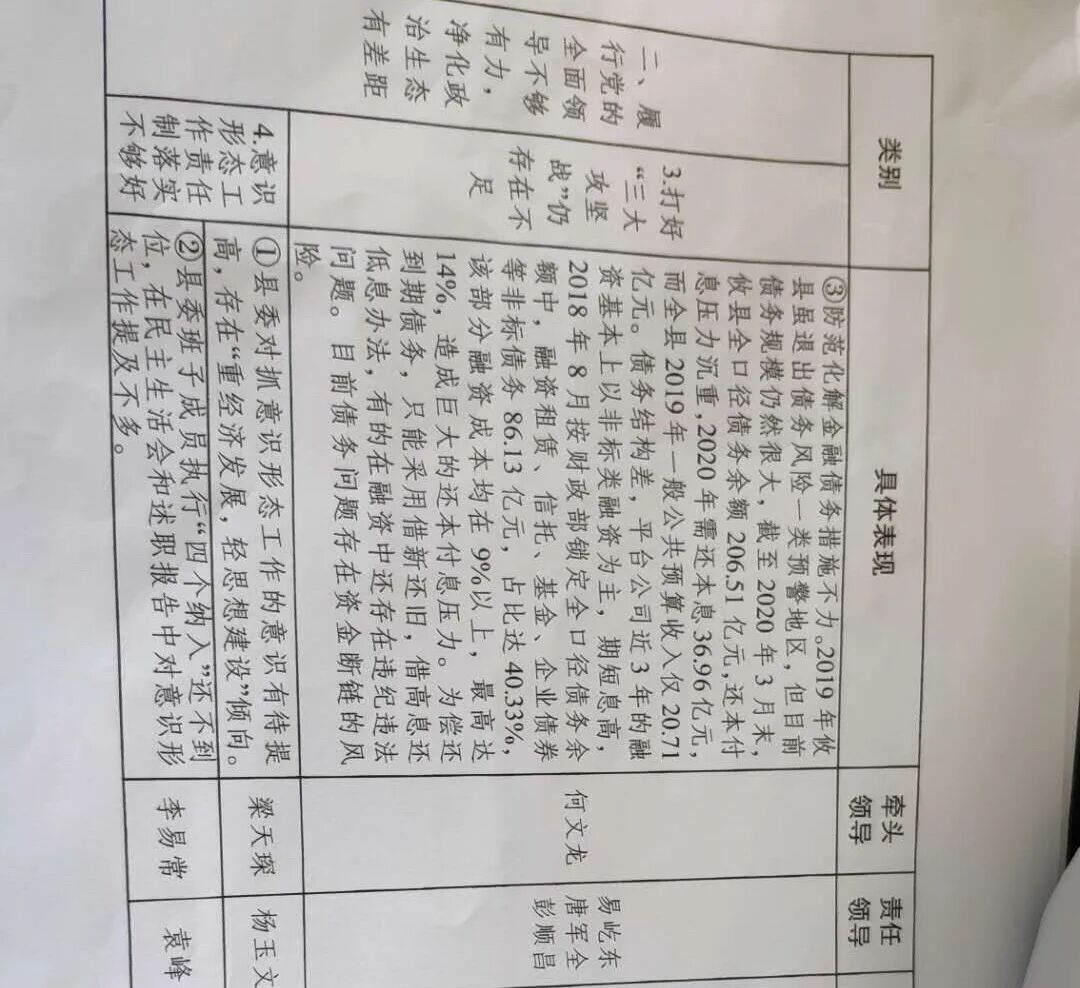 类别
具体表现
牵头
领导
责任
领导
二、履
行党的
全面领
导不够
有力，
净化政
治生态
有差距
3.打好
“三大
攻坚
战”仍
存在不
足
③防范化解金融债务措施不力。2019 年攸
县虽退出债务风险一类预警地区，但目前
债务规模仍然很大，截至 2020 年 3 月末，
攸县全口径债务余额 206.51 亿元，还本付
息压力沉重，2020 年需还本息 36.96 亿元，
而全县 2019 年一般公共预算收入仅 20.71
亿元。债务结构差，平台公司近 3 年的融
资基本上以非标类融资为主，期短息高，
2018 年 8 月按财政部锁定全口径债务余
额中，融资租赁、信托、基金、企业债券
等非标债务 86.13 亿元，占比达 40.33%，
该部分融资成本均在 9%以上，最高达
14%，造成巨大的还本付息压力。为偿还
到期债务，只能采用借新还旧，借高息还
低息办法，有的在融资中还存在违纪违法
问题。目前债务问题存在资金断链的风
险。
何文龙
易屹东
唐军全
彭顺昌
4.意识
形态工
作责任
制落实
不够好
①县委对抓意识形态工作的意识有待提
高，存在“重经济发展，轻思想建设”倾向。
梁天琛
杨玉文
②县委班子成员执行“四个纳入”还不到
位，在民主生活会和述职报告中对意识形
态工作提及不多。
李易常
袁峰